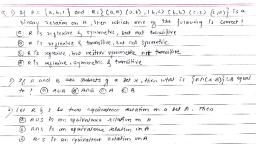 Q.1) If A = {a, b, c} and R = {(a,a) (a,b), (b,c) (b,b) (c,c) (c,a)} is a
binary relation on A, then which one of the following is correct?
R is reflexive & symmetric, but not transitive
R is reflexive & transitive, but not symmetric
R is reflexive, but neither symmetric nor transitive
R is reflexive, symmetric & transitive
If A and B are subsets of a set X, then what is equal
to?
Let R & S be two equivalence relation on a set A. Then
R∪S is an equivalence relation in A
R∩S is an equivalence relation in A
R-S is an equivalence relation in A